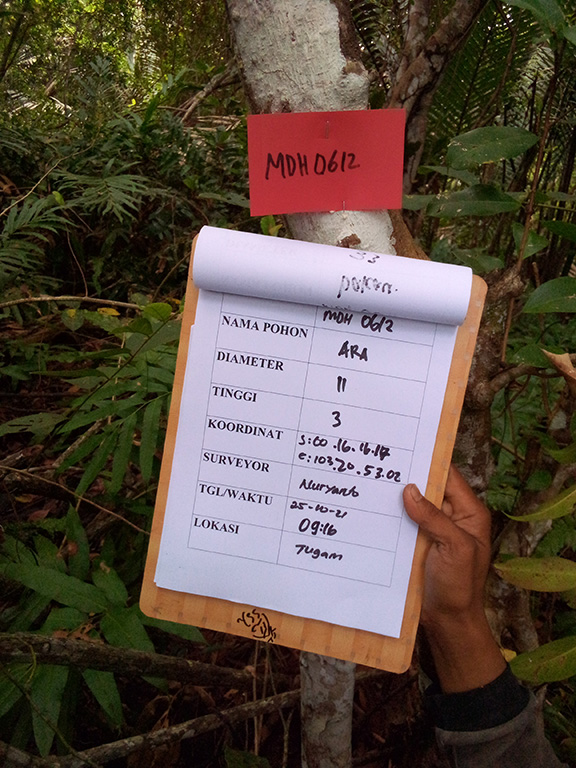 MDH 0612
MDH 0612
NAMA POHON ARA
DIAMETER 11
TINGGI 3
KOORDINAT S:00.16.16.17
E:103.20.53.02
SURVEYOR
TGL/WAKTU 25-10-21
09:16
LOKASI Tugam